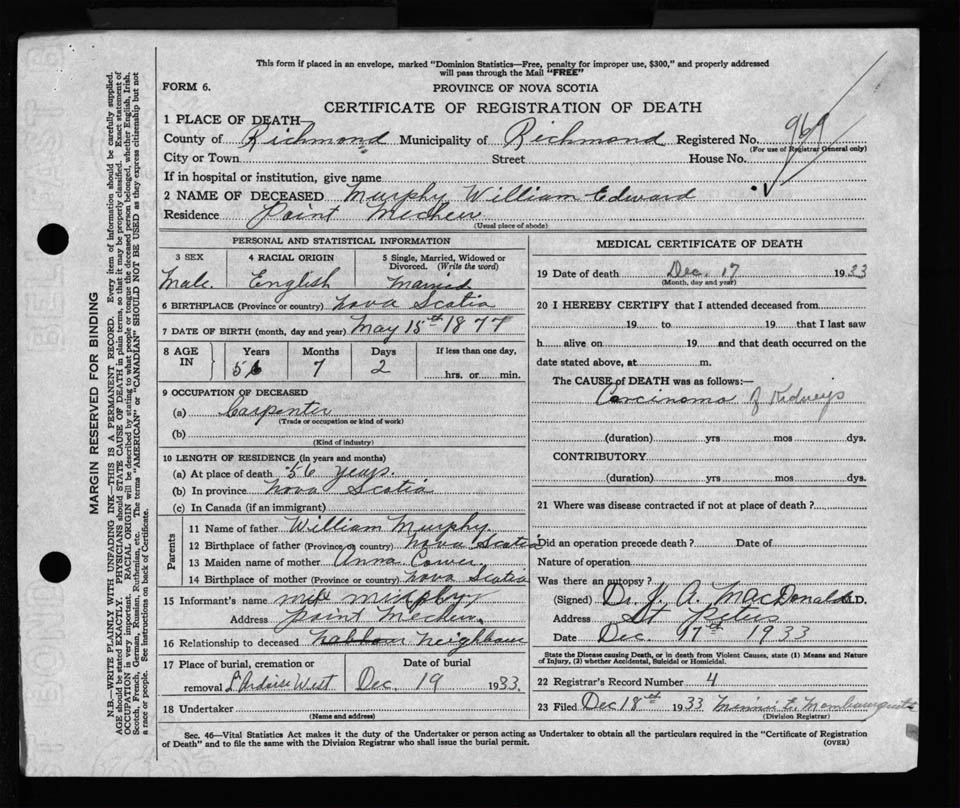 This form if placed in an envelope, marked "Dominion Statistics—Free, penalty for improper use, $300," and properly addressed
will pass through the Mail "FREE"
FORM 6.
PROVINCE OF NOVA SCOTIA
CERTIFICATE OF REGISTRATION OF DEATH
1 PLACE OF DEATH
County of Richmond Municipality of Richmond Registered No.
(For use of Registrar General only)
City or Town Street House No.
If in hospital or institution, give name
2 NAME OF DECEASED Murphy William Edward
Residence Point Mechen
(Usual place of abode)
PERSONAL AND STATISTICAL INFORMATION
3 SEX 4 RACIAL ORIGIN 5 Single, Married, Widowed or Divorced. (Write the word)
Male. English Married
6 BIRTHPLACE (Province or country) Nova Scotia
7 DATE OF BIRTH (month, day and year) May 15th 1877
8 AGE IN Years Months Days If less than one day,
56 7 2 hrs. or min.
9 OCCUPATION OF DECEASED
(a) Carpenter
(Trade or occupation or kind of work)
(b)
(Kind of industry)
10 LENGTH OF RESIDENCE (in years and months)
(a) At place of death 56 years.
(b) In province Nova Scotia
(c) In Canada (if an immigrant)
Parents
11 Name of father William Murphy.
12 Birthplace of father (Province or country) Nova Scotia
13 Maiden name of mother Anna
14 Birthplace of mother (Province or country) Nova Scotia
15 Informant's name Murphy
Address Point Mechen
16 Relationship to deceased Neighbour
17 Place of burial, cremation or removal L'Ardoise West
Date of burial Dec. 19 1933.
18 Undertaker
(Name and address)
MEDICAL CERTIFICATE OF DEATH
19 Date of death Dec. 17 1933
(Month, day and year)
20 I HEREBY CERTIFY that I attended deceased from
19 to 19 that I last saw
h alive on 19 and that death occurred on the
date stated above, at m.
The CAUSE of DEATH was as follows:—
Carcinoma of Kidneys
(duration) yrs mos dys.
CONTRIBUTORY
(duration) yrs. mos. dys.
21 Where was disease contracted if not at place of death?
Did an operation precede death? Date of
Nature of operation
Was there an autopsy?
(Signed) Dr. J. A. MacDonald M.D.
Address St Peters
Date Dec. 17th 1933
State the Disease causing Death, or in death from Violent Causes, state (1) Means and Nature
of Injury, (2) whether Accidental, Suicidal or Homicidal.
22 Registrar's Record Number 4
23 Filed Dec 18th 1933
(Division Registrar)
Sec. 46—Vital Statistics Act makes it the duty of the Undertaker or person acting as Undertaker to obtain all the particulars required in the "Certificate of Registration
of Death" and to file the same with the Division Registrar who shall issue the burial permit.
(OVER)
MARGIN RESERVED FOR BINDING
N.B.—WRITE PLAINLY WITH UNFADING INK—THIS IS A PERMANENT RECORD. Every item of information should be carefully supplied.
AGE should be stated EXACTLY. PHYSICIANS should STATE CAUSE OF DEATH in plain terms, so that it may be properly classified. Exact statement of
OCCUPATION is very important. RACIAL ORIGIN will be described by stating to what people or tongue the deceased person belonged, whether English, Irish,
Scotch, French, German, Russian, Ruthenian, etc. The terms "AMERICAN" or "CANADIAN" SHOULD NOT BE USED as they express citizenship but not
a race or people. See instructions on back of Certificate.